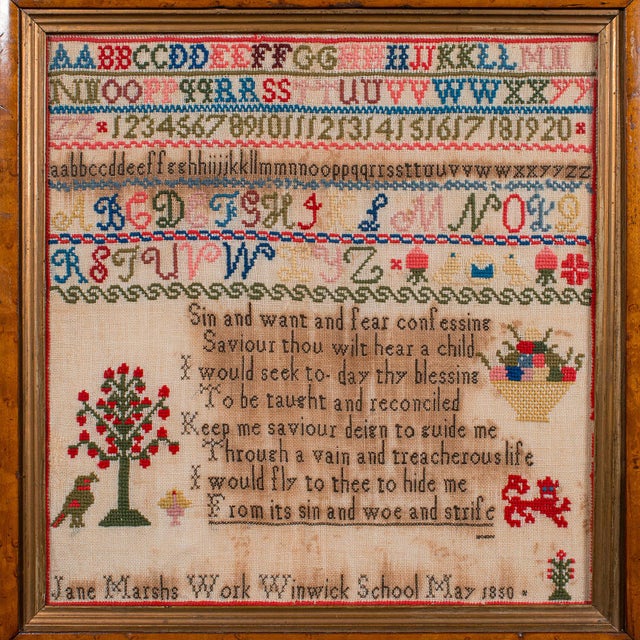 AABBCCDDEEFFGGHHHJJKKLLMM
NNOOPPqqRRSSTTUUVVWWXXYY
ZZ * 1234567891011121314151617181920 *
aabbccddeeffgghhiijjkkllmmnnooppqqrrssttuuvvwwxxyyzz
ABCDEFGHIKLMNOPQ
RSTUVWXYZ
Sin and want and fear confessing
Saviour thou wilt hear a child
I would seek to-day thy blessing
To be taught and reconciled
Keep me saviour deign to guide me
Through a vain and treacherous life
I would fly to thee to hide me
From its sin and woe and strife
Jane Marshs Work Winwick School May 1850 *